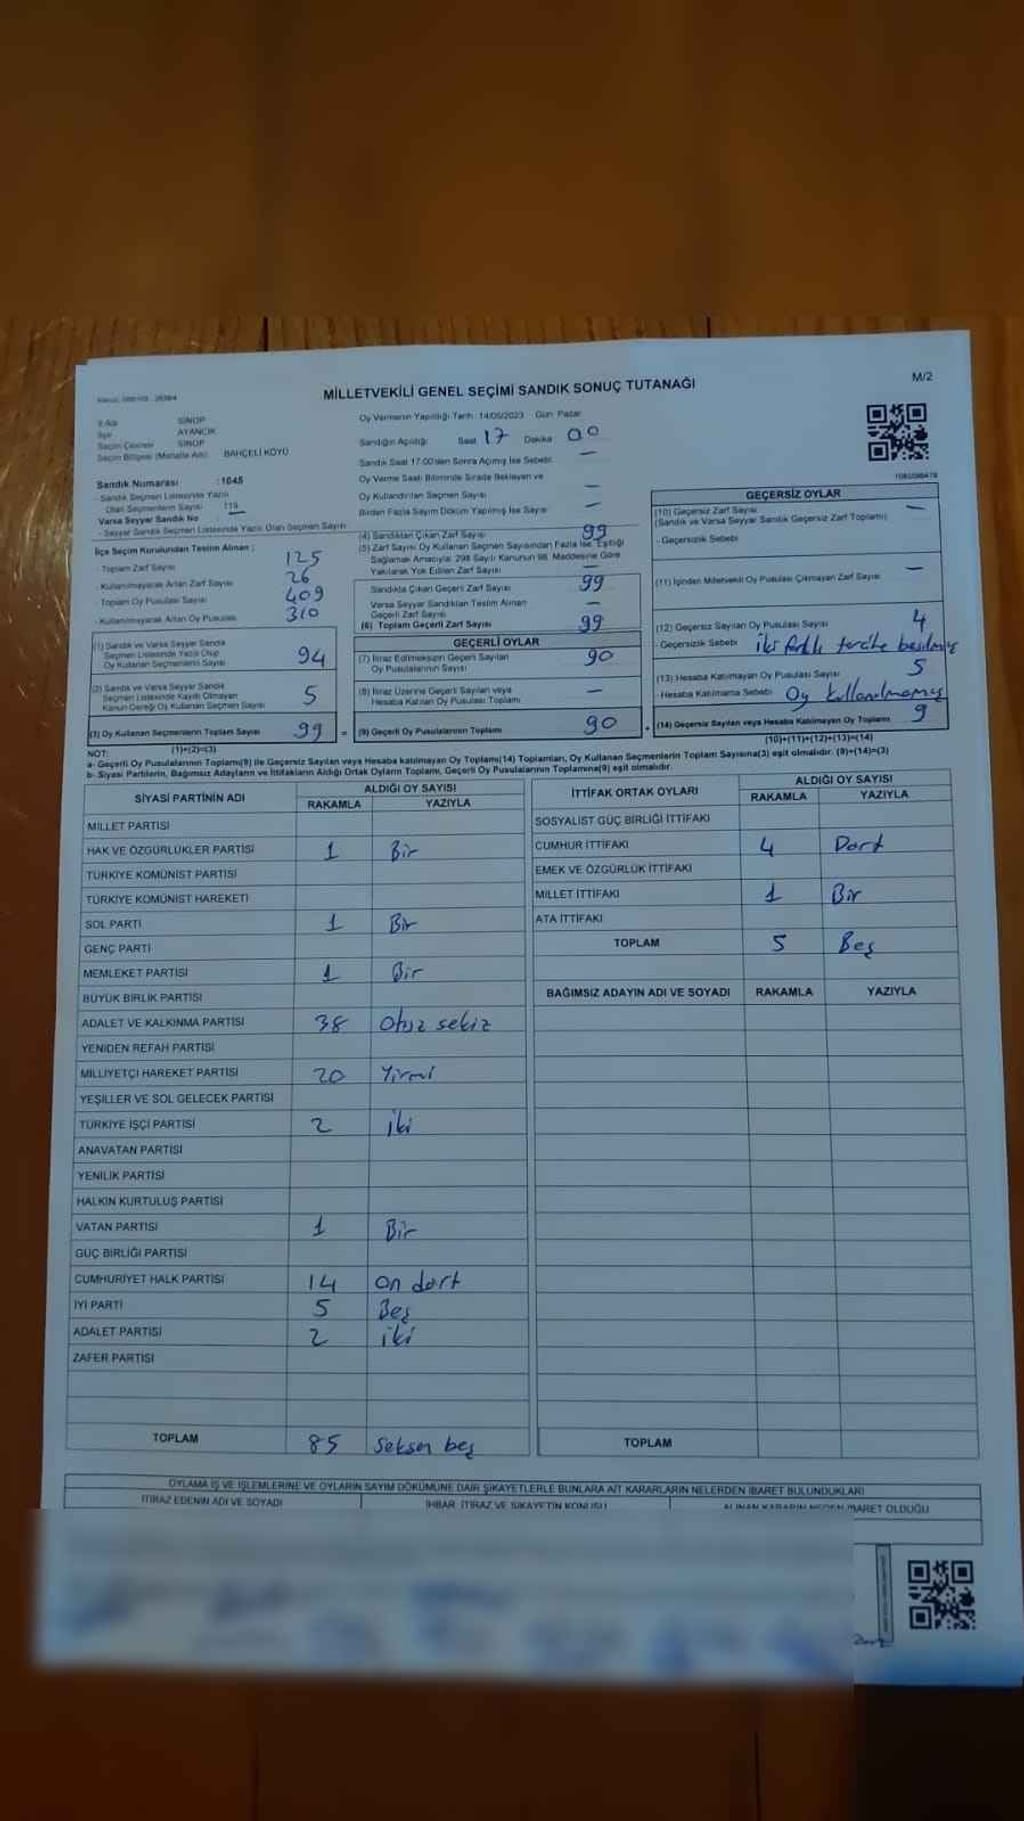 MİLLETVEKİLİ GENEL SEÇİMİ SANDIK SONUÇ TUTANAĞI
M/2
SİNOP
İlçe AYANCIK
Seçim Çevresi SİNOP
Seçim Bölgesi (Mahalle Adı) BAHÇELİ KÖYÜ
Sandık Numarası : 1045
- Sandık Seçmen Listesinde Yazılı
Olan Seçmenlerin Sayısı 119
Varsa Seyyar Sandık No
- Seyyar Sandık Seçmen Listesinde Yazılı Olan Seçmen Sayısı
İlçe Seçim Kurulundan Teslim Alınan :
- Toplam Zarf Sayısı 125
- Kullanılmayarak Artan Zarf Sayısı 26
- Toplam Oy Pusulası Sayısı 409
- Kullanılmayarak Artan Oy Pusulası 310
(1) Sandık ve Varsa Seyyar Sandık
Seçmen Listesinde Yazılı Olup
Oy Kullanan Seçmenlerin Sayısı 94
(2) Sandık ve Varsa Seyyar Sandık
Seçmen Listesinde Kayıtlı Olmayan
Kanun Gereği Oy Kullanan Seçmen Sayısı 5
(3) Oy Kullanan Seçmenlerin Toplam Sayısı 99 =
(1)+(2)=(3)
Oy Vermenin Yapıldığı Tarih: 14/05/2023 Gün: Pazar
Sandığın Açıldığı Saat 17 Dakika 00
Sandık Saat 17:00'den Sonra Açılmış İse Sebebi —
Oy Verme Saati Bitiminde Sırada Bekleyen ve
Oy Kullandırılan Seçmen Sayısı —
Birden Fazla Sayım Döküm Yapılmış İse Sayısı —
(4) Sandıktan Çıkan Zarf Sayısı 99
(5) Zarf Sayısı Oy Kullanan Seçmen Sayısından Fazla İse, Eşitliği
Sağlamak Amacıyla 298 Sayılı Kanunun 98. Maddesine Göre
Yakılarak Yok Edilen Zarf Sayısı —
Sandıkta Çıkan Geçerli Zarf Sayısı 99
Varsa Seyyar Sandıktan Teslim Alınan
Geçerli Zarf Sayısı —
(6) Toplam Geçerli Zarf Sayısı 99
GEÇERLİ OYLAR
(7) İtiraz Edilmeksizin Geçerli Sayılan
Oy Pusulalarının Sayısı 90
(8) İtiraz Üzerine Geçerli Sayılan veya
Hesaba Katılan Oy Pusulası Toplamı —
(9) Geçerli Oy Pusulalarının Toplamı 90 +
GEÇERSİZ OYLAR
(10) Geçersiz Zarf Sayısı —
(Sandık ve Varsa Seyyar Sandık Geçersiz Zarf Toplamı)
- Geçersizlik Sebebi
(11) İçinden Milletvekili Oy Pusulası Çıkmayan Zarf Sayısı —
(12) Geçersiz Sayılan Oy Pusulası Sayısı 4
- Geçersizlik Sebebi iki farklı tercihe basılmış
(13) Hesaba Katılmayan Oy Pusulası Sayısı 5
- Hesaba Katılmama Sebebi Oy kullanılmamış
(14) Geçersiz Sayılan veya Hesaba Katılmayan Oy Toplamı 9
(10)+(11)+(12)+(13)=(14)
NOT:
a- Geçerli Oy Pusulalarının Toplamı(9) ile Geçersiz Sayılan veya Hesaba katılmayan Oy Toplamı(14) Toplamları, Oy Kullanan Seçmenlerin Toplam Sayısına(3) eşit olmalıdır. (9)+(14)=(3)
b- Siyasi Partilerin, Bağımsız Adayların ve İttifakların Aldığı Ortak Oyların Toplamı, Geçerli Oy Pusulalarının Toplamına(9) eşit olmalıdır.
SİYASİ PARTİNİN ADI ALDIĞI OY SAYISI
RAKAMLA YAZIYLA
MİLLET PARTİSİ
HAK VE ÖZGÜRLÜKLER PARTİSİ 1 Bir
TÜRKİYE KOMÜNİST PARTİSİ
TÜRKİYE KOMÜNİST HAREKETİ
SOL PARTİ 1 Bir
GENÇ PARTİ
MEMLEKET PARTİSİ 1 Bir
BÜYÜK BİRLİK PARTİSİ
ADALET VE KALKINMA PARTİSİ 38 Otuz sekiz
YENİDEN REFAH PARTİSİ
MİLLİYETÇİ HAREKET PARTİSİ 20 Yirmi
YEŞİLLER VE SOL GELECEK PARTİSİ
TÜRKİYE İŞÇİ PARTİSİ 2 iki
ANAVATAN PARTİSİ
YENİLİK PARTİSİ
HALKIN KURTULUŞ PARTİSİ
VATAN PARTİSİ 1 Bir
GÜÇ BİRLİĞİ PARTİSİ
CUMHURİYET HALK PARTİSİ 14 on dört
İYİ PARTİ 5 Beş
ADALET PARTİSİ 2 iki
ZAFER PARTİSİ
TOPLAM 85 Seksen beş
İTTİFAK ORTAK OYLARI ALDIĞI OY SAYISI
RAKAMLA YAZIYLA
SOSYALİST GÜÇ BİRLİĞİ İTTİFAKI
CUMHUR İTTİFAKI 4 Dört
EMEK VE ÖZGÜRLÜK İTTİFAKI
MİLLET İTTİFAKI 1 Bir
ATA İTTİFAKI
TOPLAM 5 Beş
BAĞIMSIZ ADAYIN ADI VE SOYADI RAKAMLA YAZIYLA
TOPLAM
OYLAMA İŞ VE İŞLEMLERİNE VE OYLARIN SAYIM DÖKÜMÜNE DAİR ŞİKAYETLERLE BUNLARA AİT KARARLARIN NELERDEN İBARET BULUNDUKLARI
İTİRAZ EDENİN ADI VE SOYADI İHBAR, İTİRAZ VE ŞİKAYETİN KONUSU ALINAN KARARIN NEDEN İBARET OLDUĞU